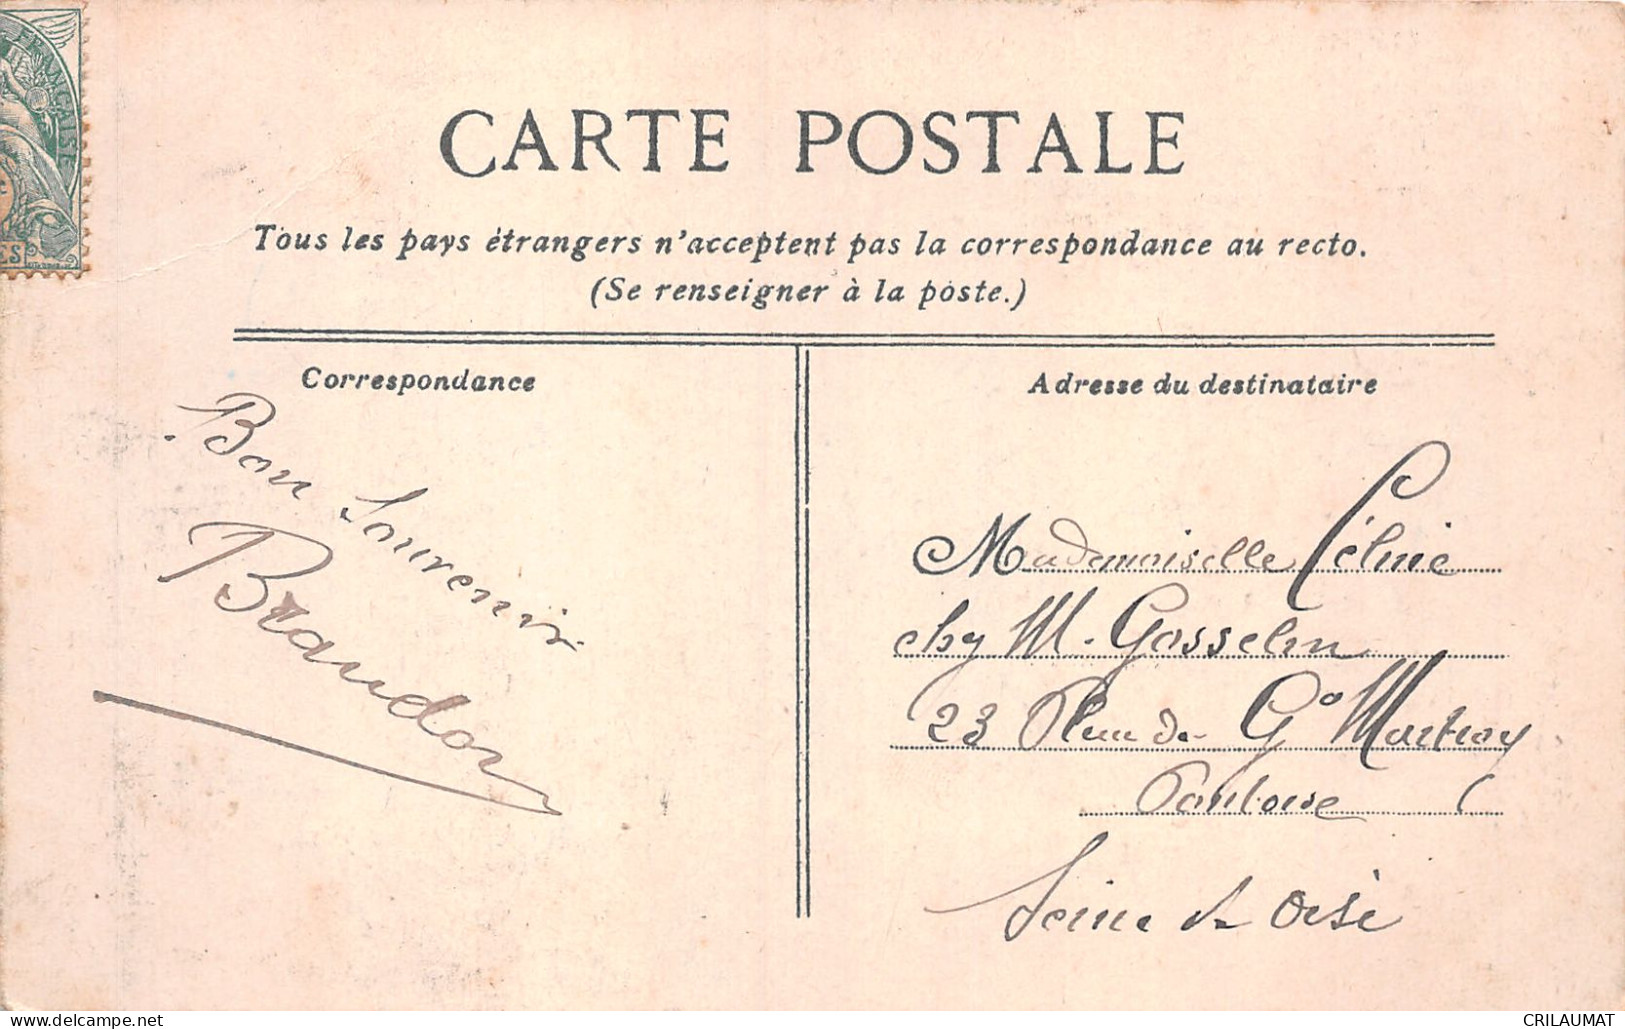 FRANÇAISE
CARTE POSTALE
Tous les pays étrangers n'acceptent pas la correspondance au recto.
(Se renseigner à la poste.)
Correspondance
Bon Souvenir
Braudor
Adresse du destinataire
Mademoiselle Céline
chz M. Gosselin
23 Place du Gd Martroy
Pontoise
Seine et Oise
CRILAUMAT